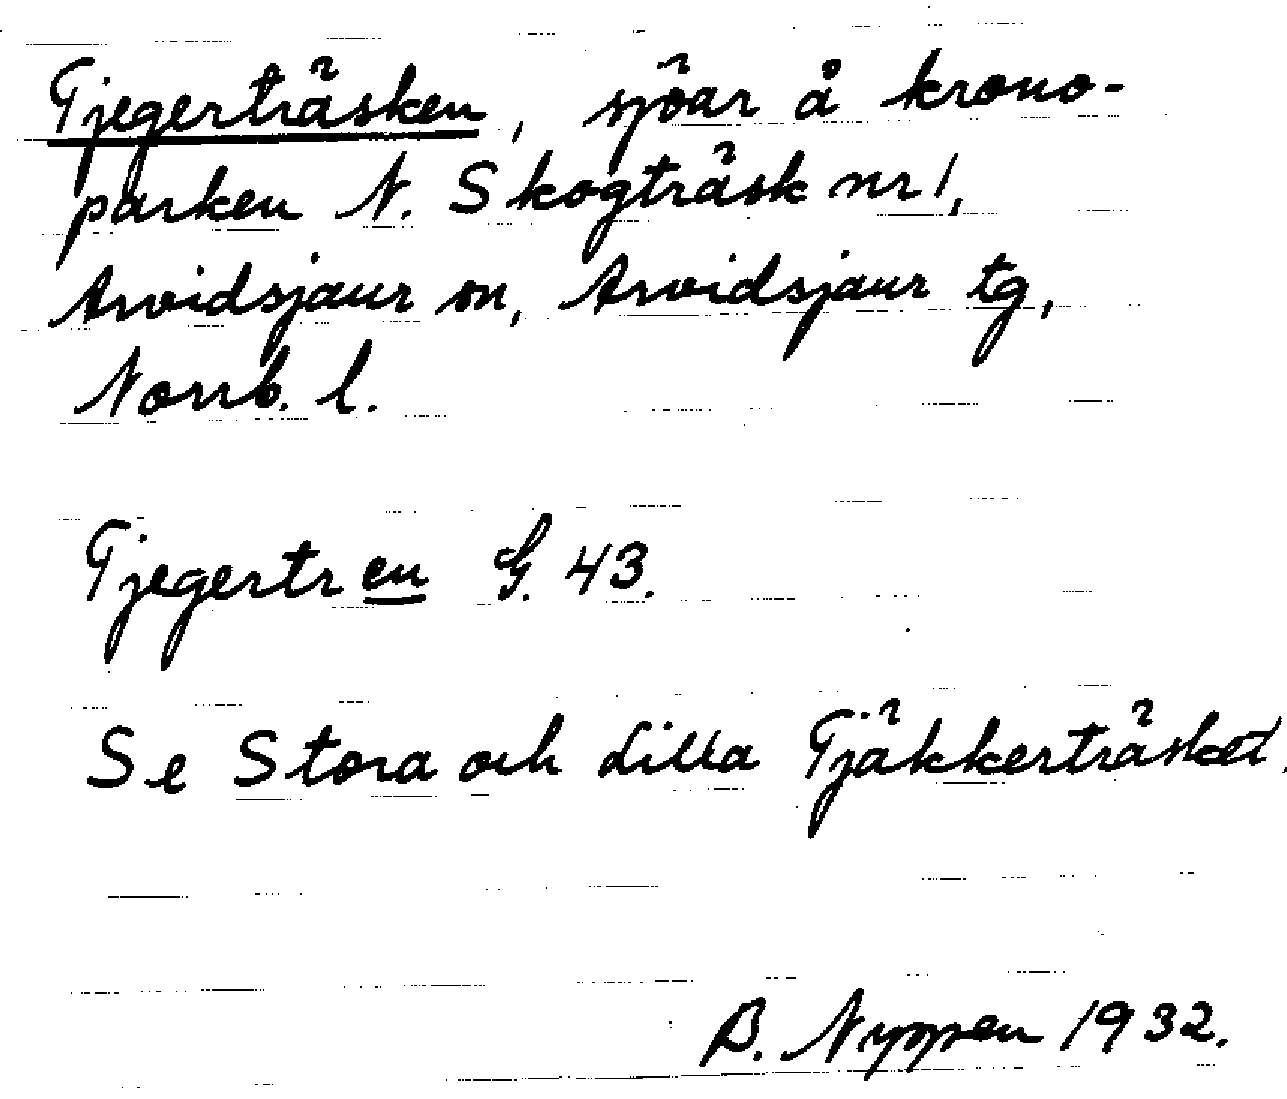 Tjegerträsken, sjöar å krono-
parken N. Skogträsk nr 1,
Arvidsjaur sn, Arvidsjaur tg,
Norrb. l.
Tjegertr en G. 43.
Se Stora och Lilla Tjäkkerträsket.
B. Nyppen 1932.